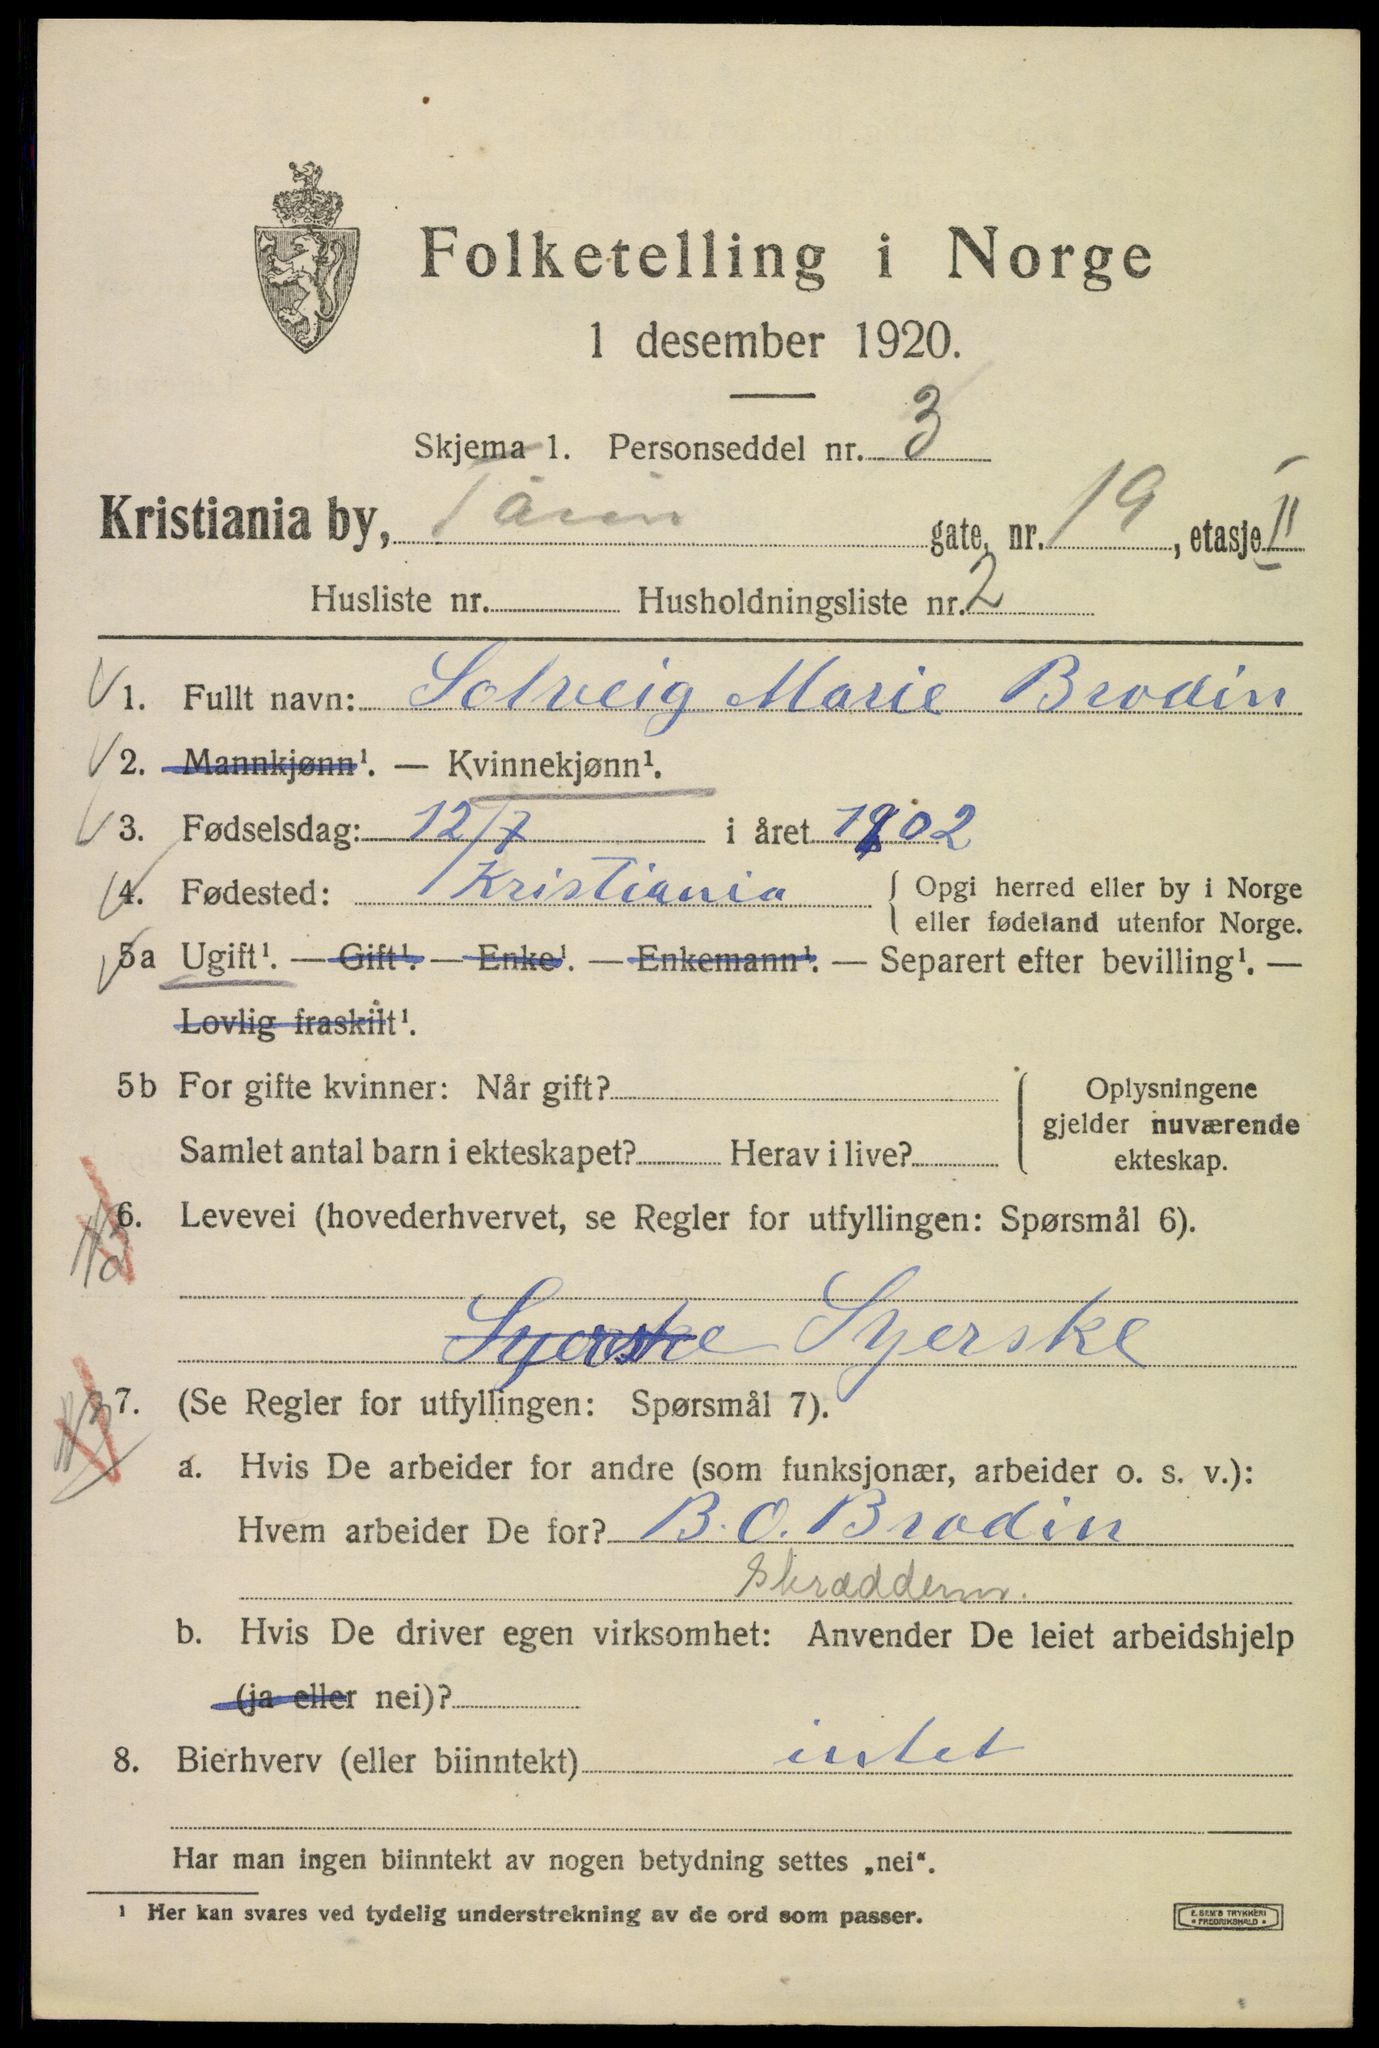 Folketelling i Norge
1 desember 1920.
Skjema 1. Personseddel nr. 3
Kristiania by, gate, nr. 19, etasje II
Husliste nr. Husholdningsliste nr. 2
1. Fullt navn: Solveig Marie Brodin
2. Mannkjønn¹. — Kvinnekjønn¹.
3. Fødselsdag: 12/7 i året 1902
4. Fødested: Kristiania { Opgi herred eller by i Norge
eller fødeland utenfor Norge.
5a Ugift¹. — Gift¹. — Enke¹. — Enkemann¹. — Separert efter bevilling¹. —
Lovlig fraskilt¹.
5b For gifte kvinner: Når gift?
Samlet antal barn i ekteskapet? Herav i live?
Oplysningene
gjelder nuværende
ekteskap.
6. Levevei (hovederhvervet, se Regler for utfyllingen: Spørsmål 6).
Syerske Syerske
7. (Se Regler for utfyllingen: Spørsmål 7).
a. Hvis De arbeider for andre (som funksjonær, arbeider o. s. v.):
Hvem arbeider De for? B. O. Brodin
Skrædderm.
b. Hvis De driver egen virksomhet: Anvender De leiet arbeidshjelp
(ja eller nei)?
8. Bierhverv (eller biinntekt) intet
Har man ingen biinntekt av nogen betydning settes „nei“.
¹ Her kan svares ved tydelig understrekning av de ord som passer.
E. SEM'S TRYKKERI
• FREDRIKSHALD •